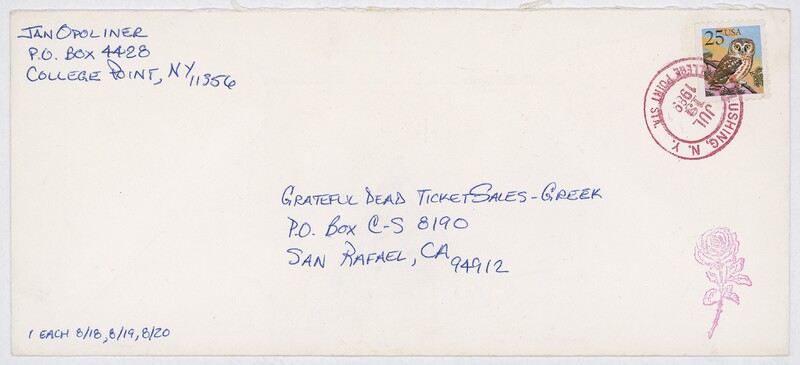 JAN OPOLINER
P.O. BOX 4428
COLLEGE POINT, NY 11356
25 USA
FLUSHING, N.Y.
COLLEGE POINT STA.
JUL
GRATEFUL DEAD TICKET SALES - GREEK
P.O. BOX C-S 8190
SAN RAFAEL, CA 94912
1 EACH 8/18, 8/19, 8/20